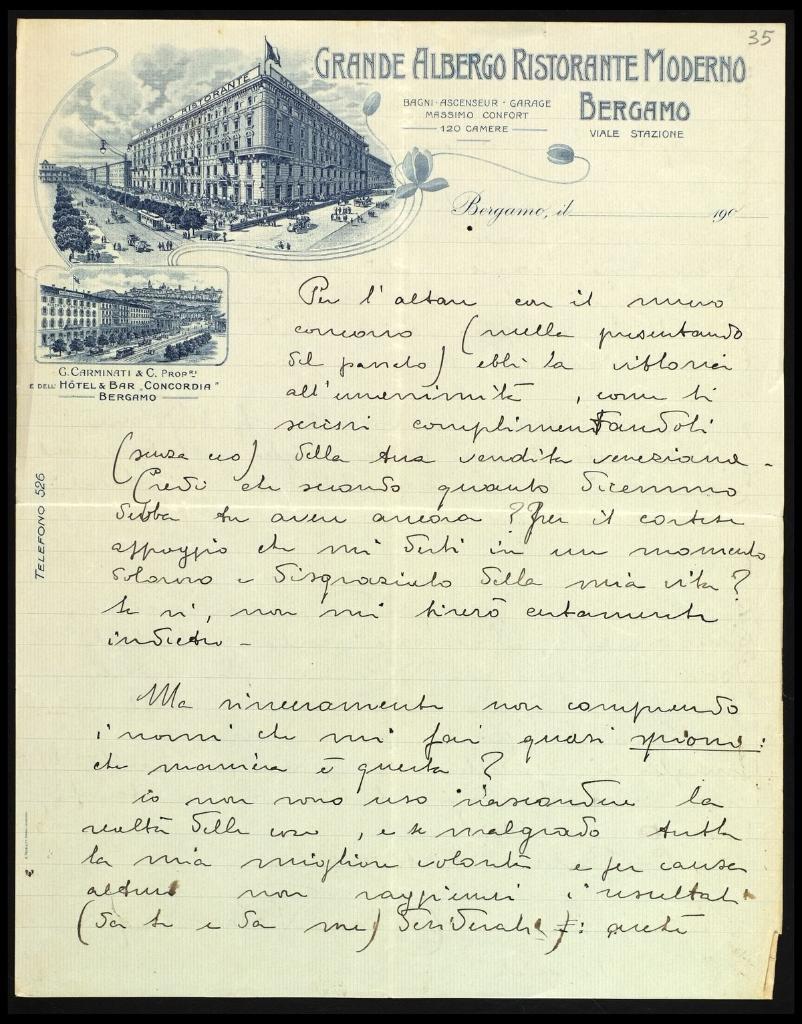 35
GRANDE ALBERGO RISTORANTE MODERNO
BERGAMO
VIALE STAZIONE
BAGNI · ASCENSEUR · GARAGE
MASSIMO CONFORT
120 CAMERE
Bergamo, il 190
G. CARMINATI & C. PROP.RI
E DELL' HÔTEL & BAR "CONCORDIA"
BERGAMO
TELEFONO 526
Per l'altare con il nuovo
concorso (nulla presentando
del passato) ebbi la vittoria
all'unanimità, come ti
scrissi complimentandoti
(senza eco) della tua vendita veneziana -
Credi che secondo quanto dicemmo
debba tu avere ancora? per il cortese
appoggio che mi desti in un momento
doloroso e disgraziato della mia vita?
Se sì, non mi tirerò certamente
indietro -
Ma sinceramente non comprendo
i nomi che mi fai quasi spione:
che maniera è questa?
io non sono uso nascondere la
realtà delle cose, e se malgrado tutta
la mia migliore volontà e per causa
altrui non raggiunsi i resultati
(da te e da me) desiderati: